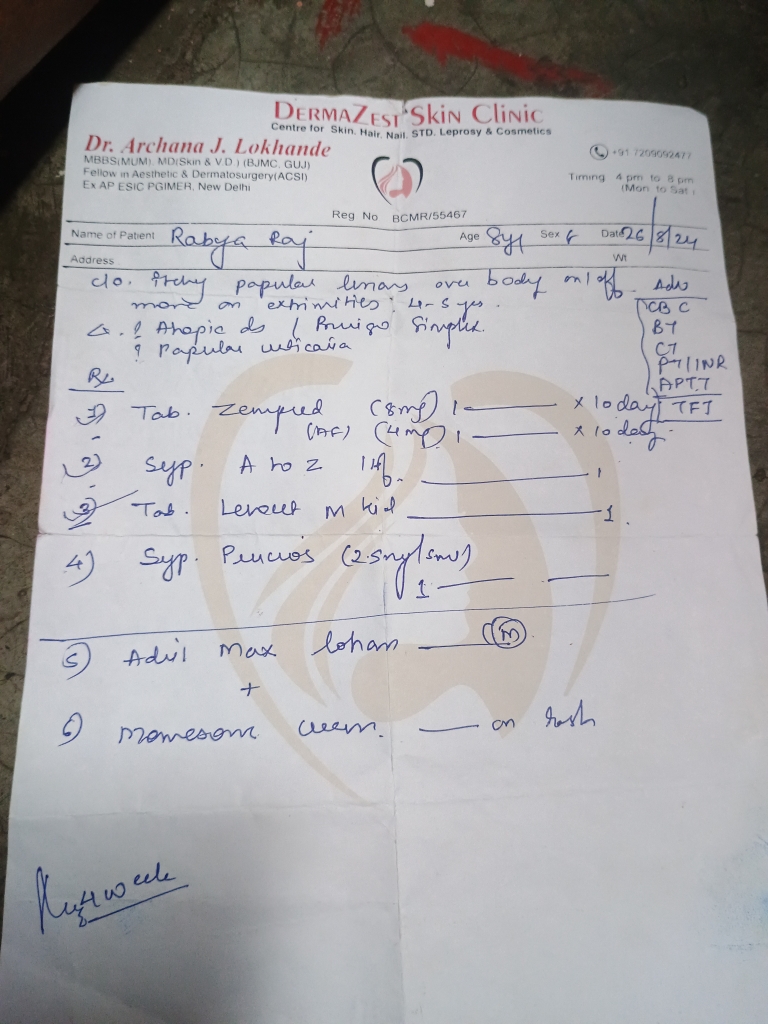 DERMAZEST SKIN CLINIC
Centre for Skin, Hair, Nail, STD, Leprosy & Cosmetics
Dr. Archana J. Lokhande
MBBS(MUM). MD(Skin & V.D.) (BJMC, GUJ)
Fellow in Aesthetic & Dermatosurgery(ACSI)
Ex AP ESIC PGIMER, New Delhi
+91 7209092477
Timing 4 pm to 8 pm
(Mon to Sat)
Reg No BCMR/55467
Name of Patient Rabya Raj Age 8y Sex F Date 26/8/24
Address Wt
c/o. itchy papular over body on/off
more on : 4-5 yrs.
Adv
CBC
BT
CT
PT/INR
APTT
TFT
Δ. ? Atopic ds / Prurigo Simplex.
? Papular urticaria
Rx
1) Tab. Zempred (8mg) 1 x 10 day
(AF) (4mg) 1 x 10 day
2) Syp. A to Z 1
3) Tab. M kid 1
4) Syp. (2.5mg/5ml)
1
5) Max lotion (M)
+
6) cream. on rash
4 week